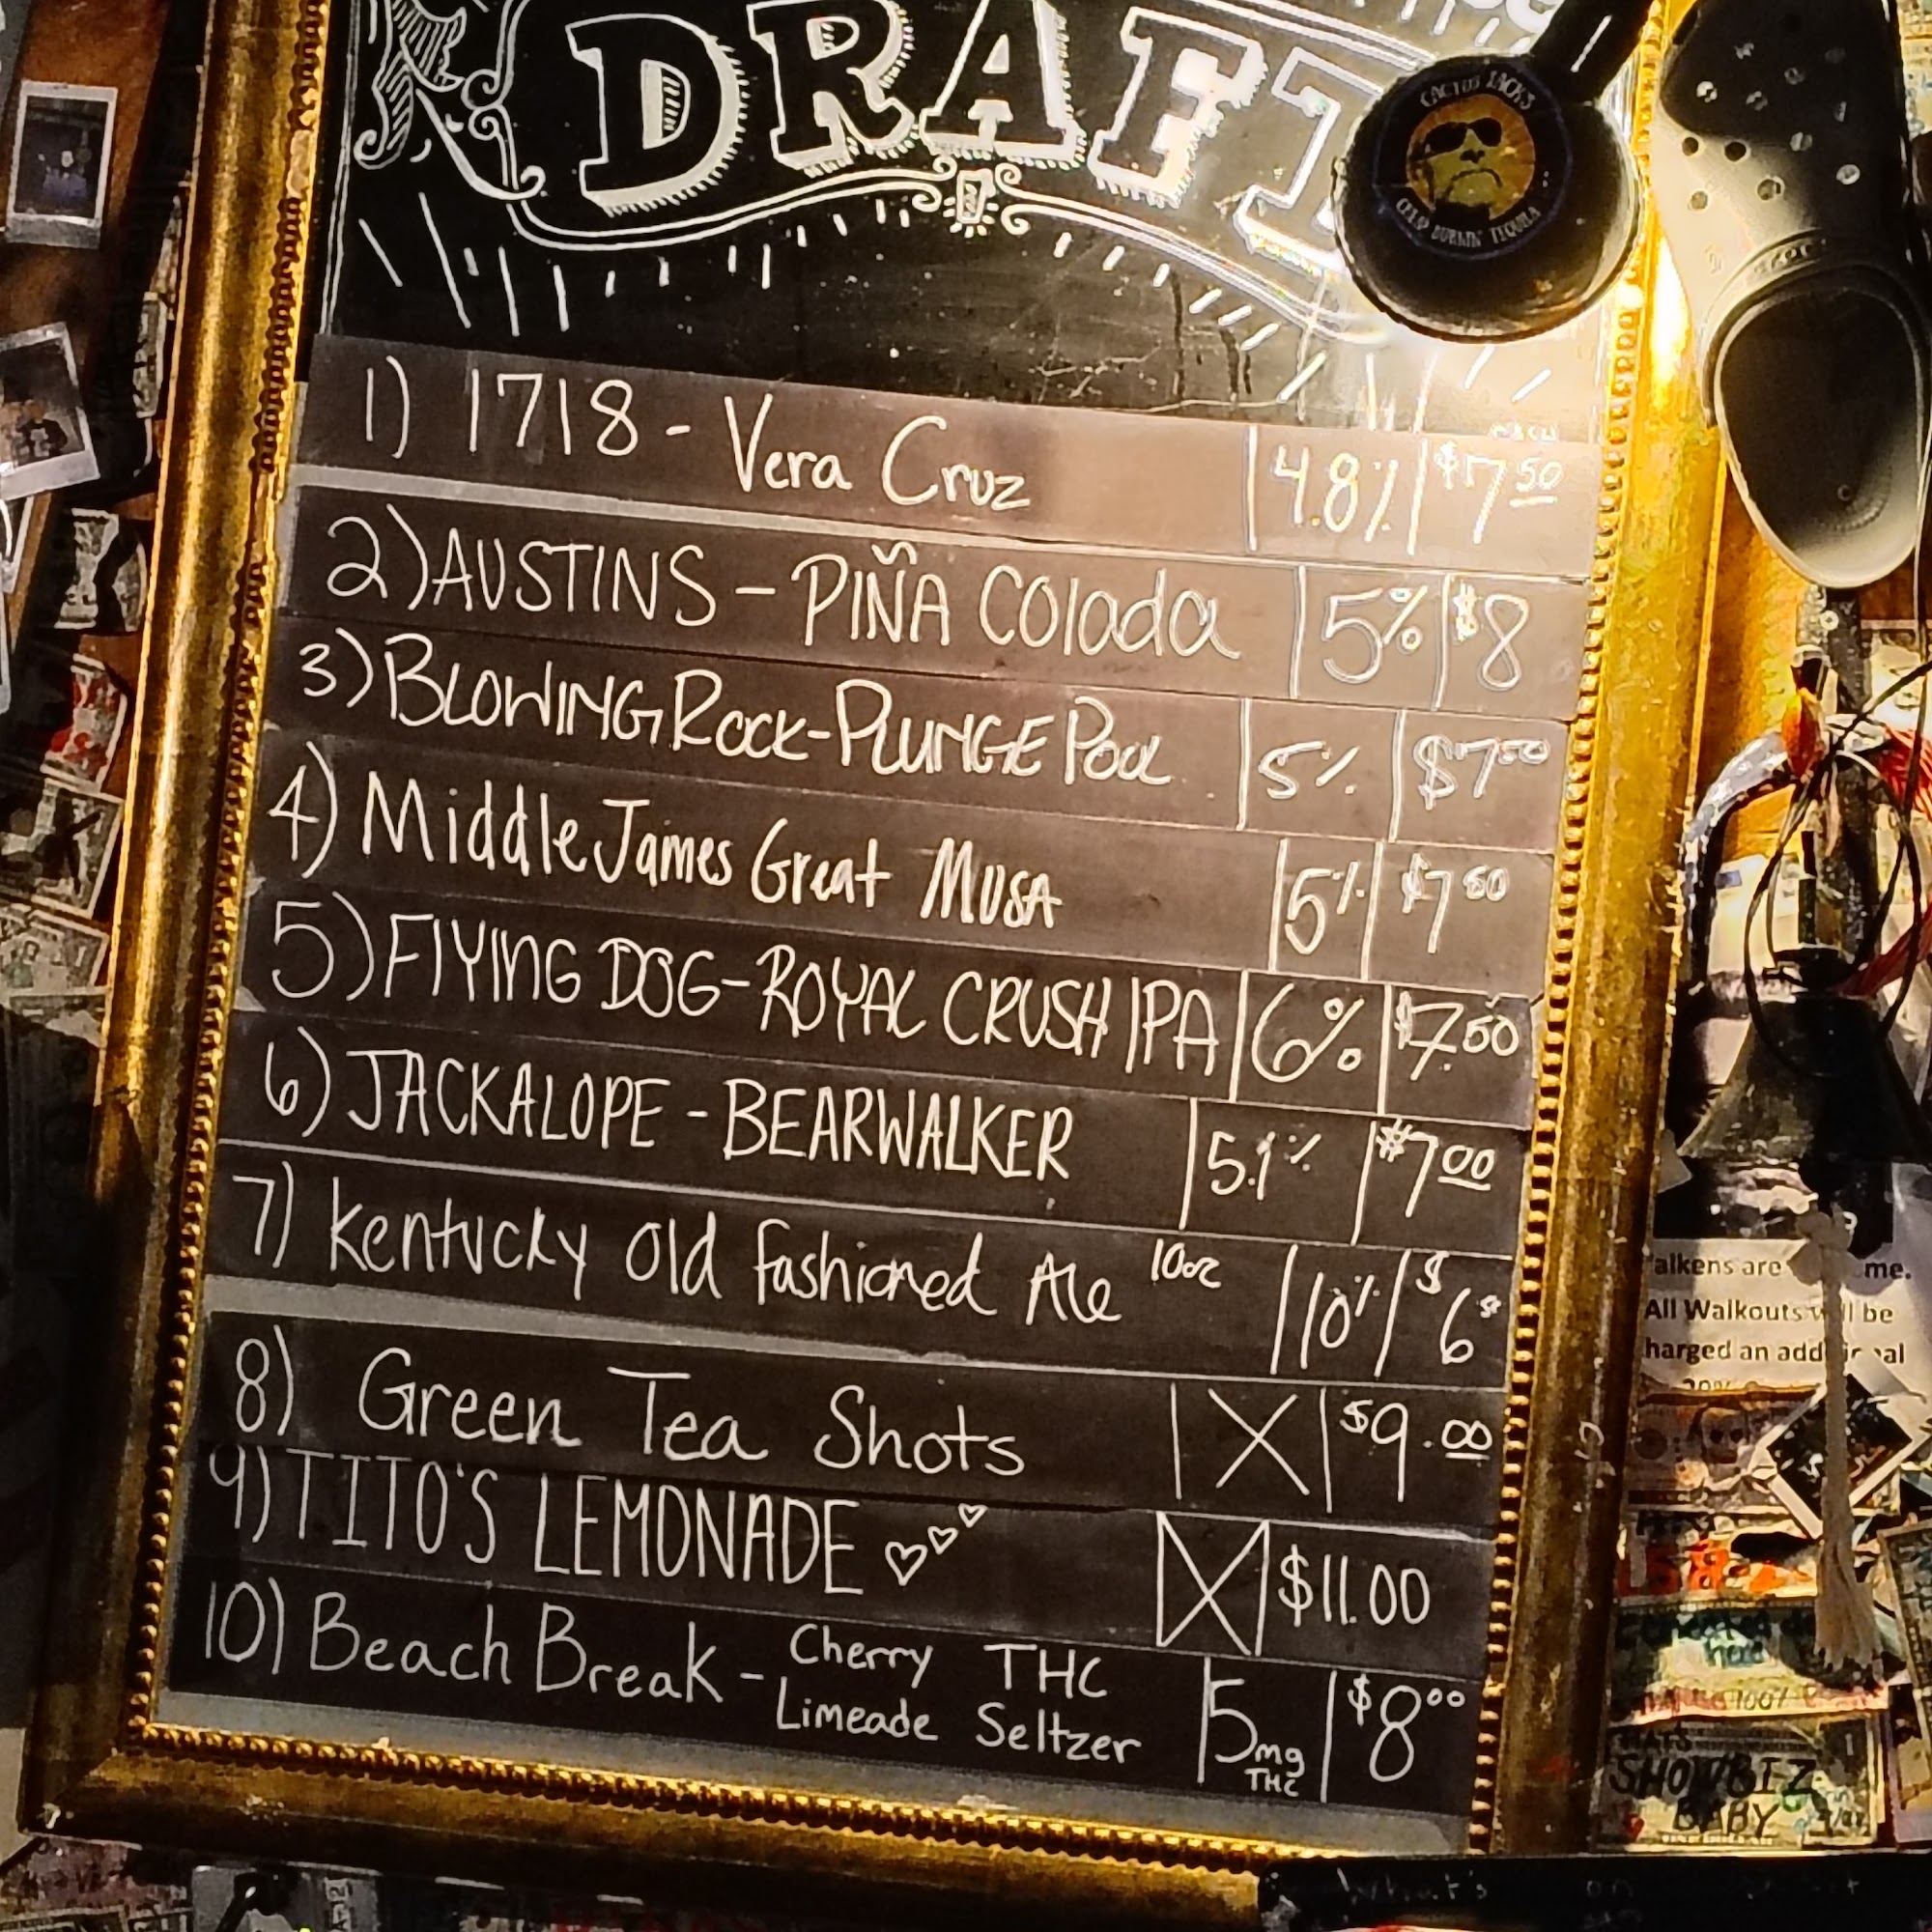 DRAFT
CACTUS JACK'S
1) 1718 - Vera Cruz | 4.8% | $7 50
2) AUSTINS - PIÑA Colada | 5% | $8
3) BLOWING ROCK - PLUNGE POOL | 5% | $7 00
4) Middle James Great MUSA | 5% | $7 50
5) FlYING DOG - ROYAL CRUSH IPA | 6% | $7.50
6) JACKALOPE - BEARWALKER | 5.1% | $7 00
7) Kentucky Old Fashioned Ale 10oz | 10% | $6
8) Green Tea Shots | X | $9.00
9) TITO'S LEMONADE ♡♡♡ | X | $11.00
10) Beach Break - Cherry THC
Limeade Seltzer | 5mg THC | $8 00
crocs
alkens are me.
All Walkouts will be
harged an additional
SHOWBIZ
BABY